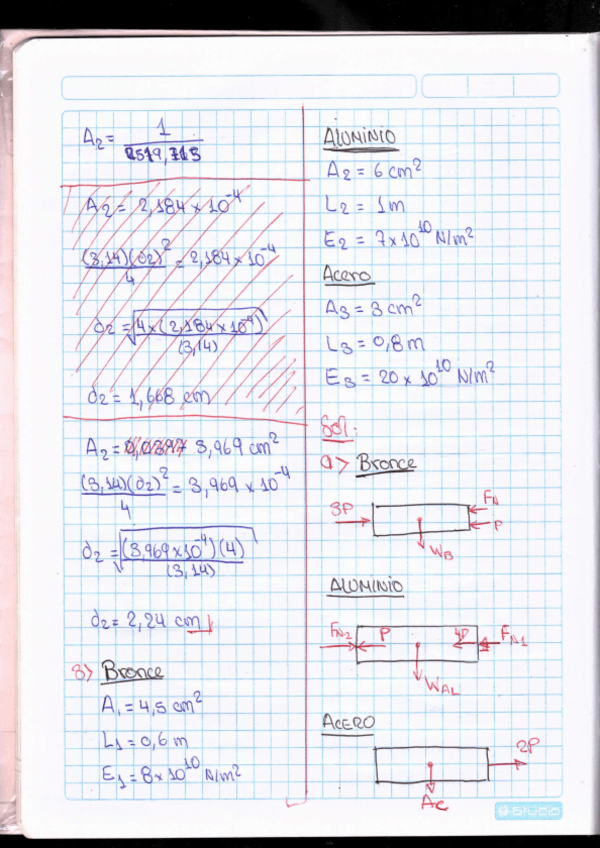 A₂ = 1
2519,715
A₂ = 2,184 × 10⁻⁴
(3,14)(d₂)² = 2,184 × 10⁻⁴
4
d₂ = √4×(2,184×10⁻⁴)
(3,14)
d₂ = 1,668 cm
A₂ = 3,969 cm²
(3,14)(d₂)² = 3,969 × 10⁻⁴
4
d₂ = √(3,969×10⁻⁴)(4)
(3,14)
d₂ = 2,24 cm
3> Bronce
A₁ = 4,5 cm²
L₁ = 0,6 m
E₁ = 8×10¹⁰ N/m²
ALUMINIO
A₂ = 6 cm²
L₂ = 1 m
E₂ = 7×10¹⁰ N/m²
Acero
A₃ = 3 cm²
L₃ = 0,8 m
E₃ = 20 × 10¹⁰ N/m²
Sol:
a> Bronce
3P
F_N
P
W_B
ALUMINIO
F_N2
P
4P
F_N1
W_AL
ACERO
2P
Ac
Studio